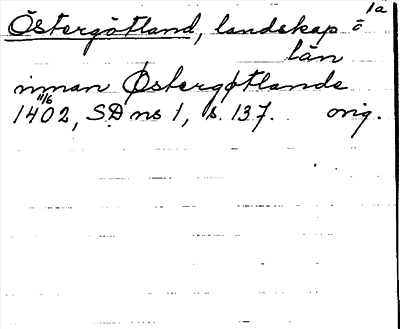 1a
Östergötland, landskap o
län
innan Østergøtlande
11/6
1402, SD ns 1, s. 137. orig.